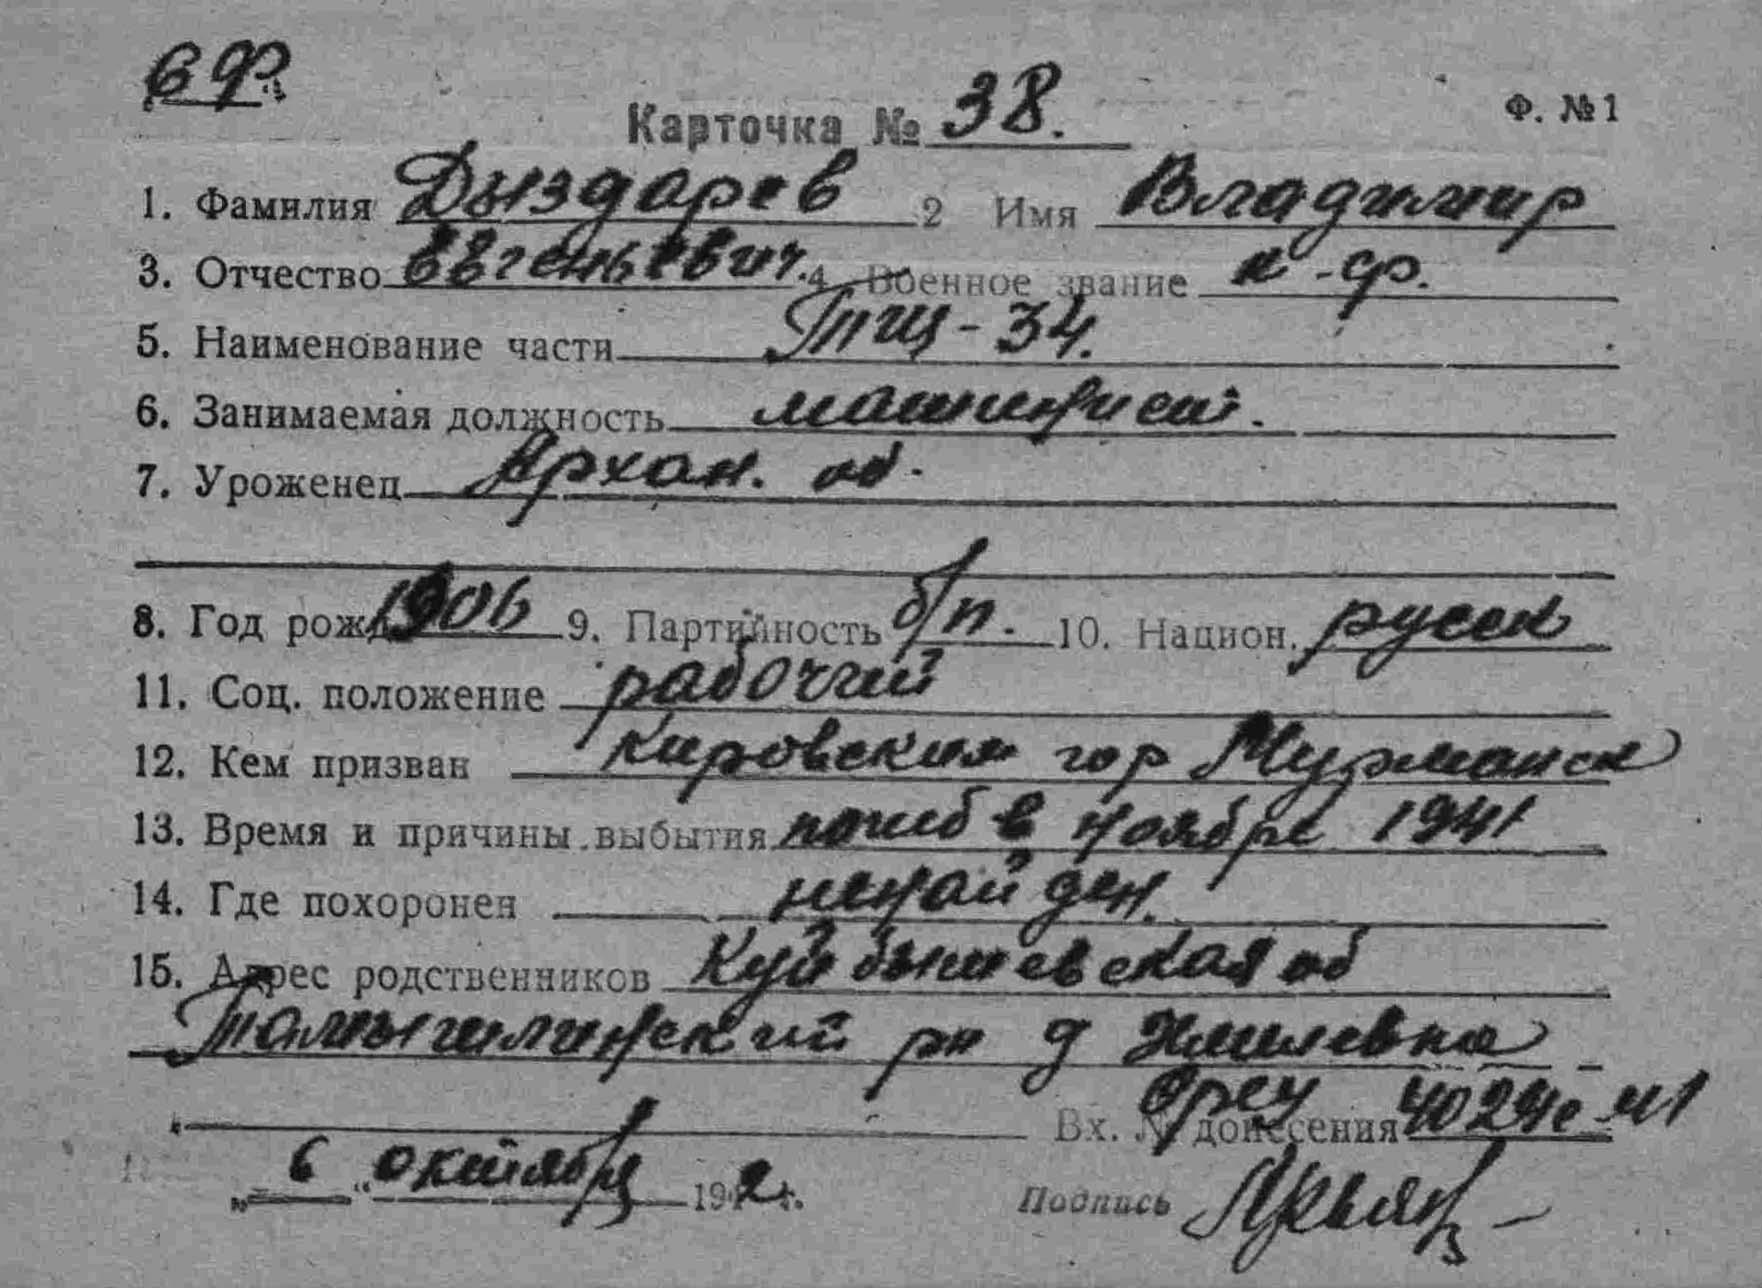 СФ.
Карточка № 38.
Ф. №1
1. Фамилия Дыздарев 2 Имя Владимир
3. Отчество Евгеньевич. 4. Военное звание к-ф.
5. Наименование части ТЩ-34.
6. Занимаемая должность машинист.
7. Уроженец Архан. об.
8. Год рожд. 1906 9. Партийность б/п. 10. Национ. русск
11. Соц. положение рабочий
12. Кем призван Кировским гор Мурманск
13. Время и причины выбытия погиб в ноябре 1941
14. Где похоронен ненайден.
15. Адрес родственников Куйбышевская об
рн д
Вх. № донесения 4024с
„ 6 “ октября 1942 г.
Подпись